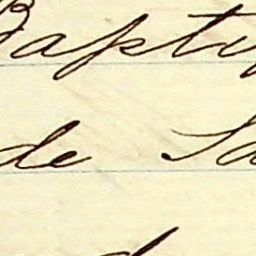 Bapti
de Sa